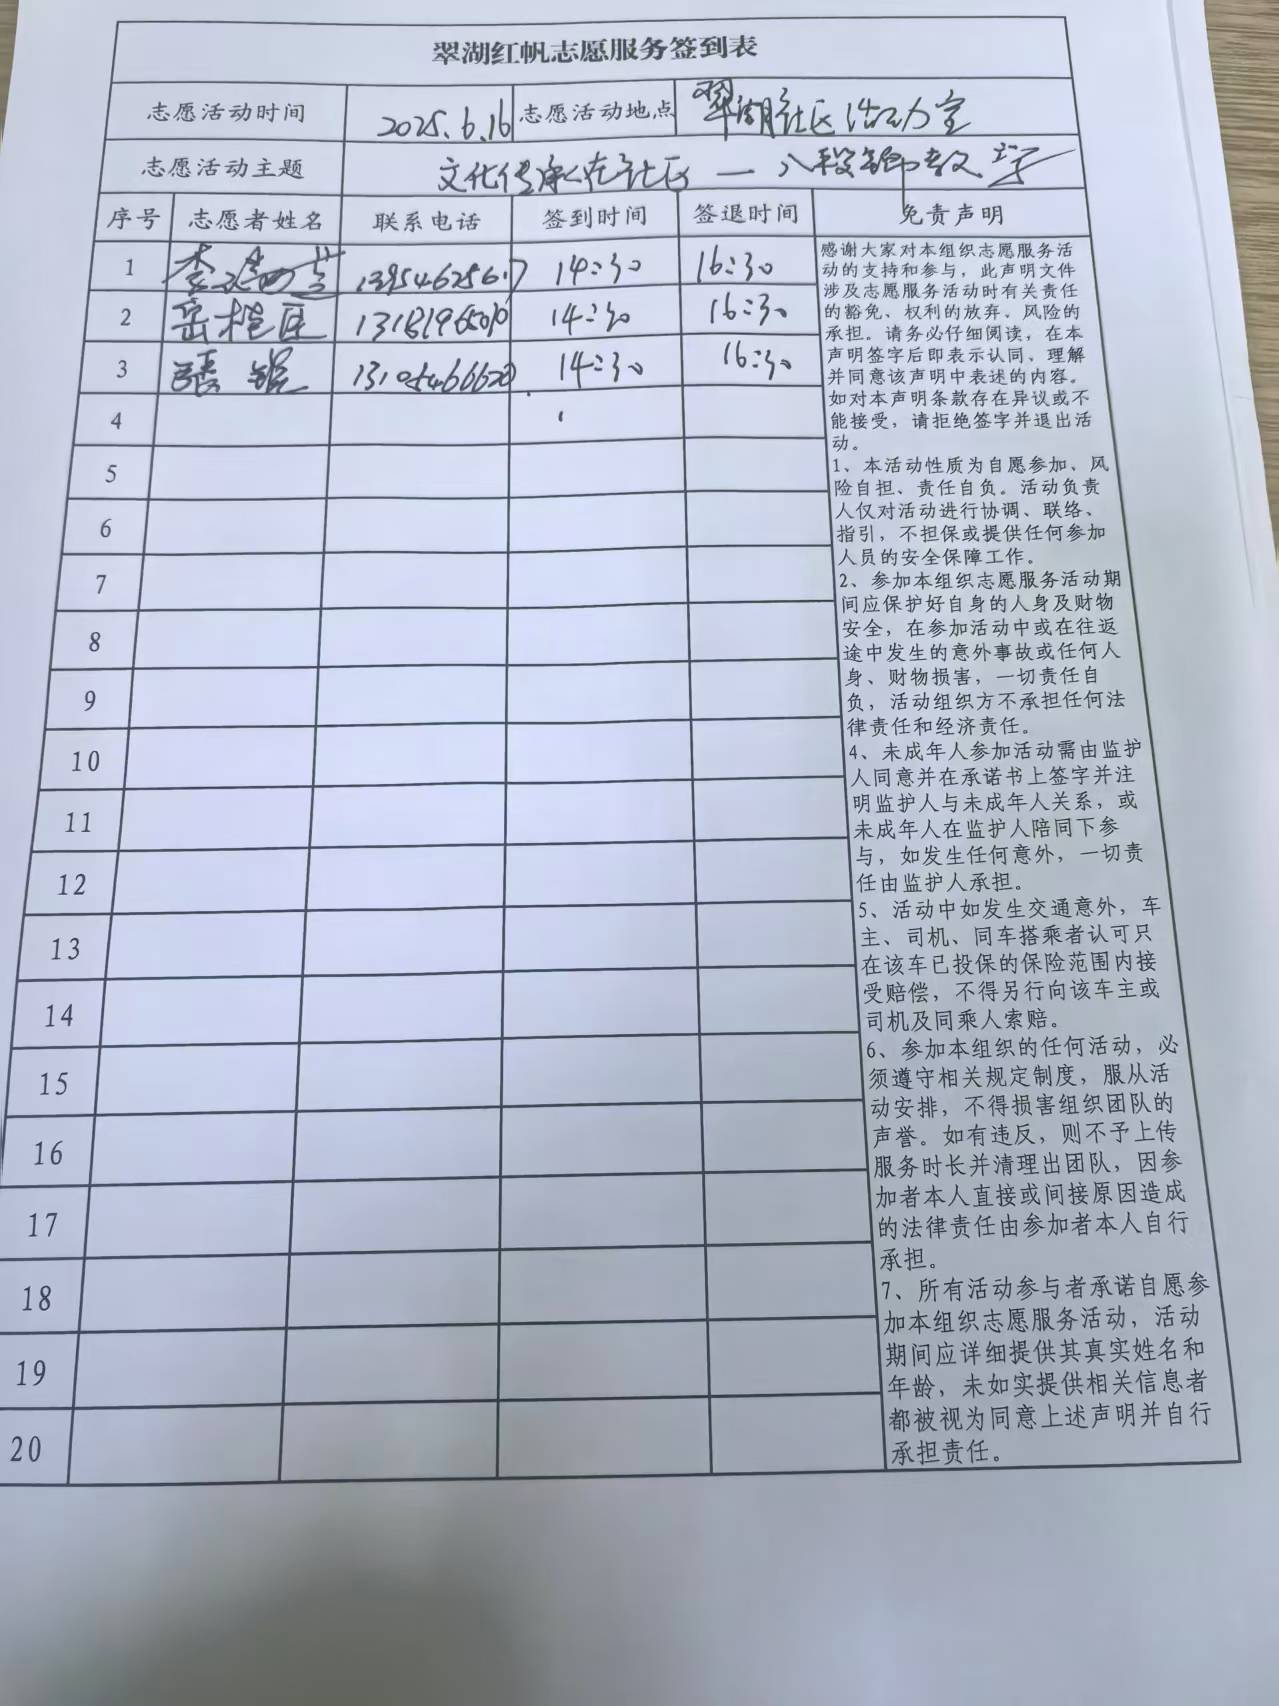 翠湖红帆志愿服务签到表
志愿活动时间 2025.6.16 志愿活动地点 翠湖社区活动室
志愿活动主题 文化传承在社区 — 八段锦教学
序号 志愿者姓名 联系电话 签到时间 签退时间 免责声明
1 李 14:30 16:30
2 岳 14:30 16:30
3 张 14:30 16:30
4
5
6
7
8
9
10
11
12
13
14
15
16
17
18
19
20
感谢大家对本组织志愿服务活
动的支持和参与，此声明文件
涉及志愿服务活动时有关责任
的豁免、权利的放弃、风险的
承担。请务必仔细阅读，在本
声明签字后即表示认同、理解
并同意该声明中表述的内容。
如对本声明条款存在异议或不
能接受，请拒绝签字并退出活
动。
1、本活动性质为自愿参加、风
险自担、责任自负。活动负责
人仅对活动进行协调、联络、
指引，不担保或提供任何参加
人员的安全保障工作。
2、参加本组织志愿服务活动期
间应保护好自身的人身及财物
安全，在参加活动中或在往返
途中发生的意外事故或任何人
身、财物损害，一切责任自
负，活动组织方不承担任何法
律责任和经济责任。
4、未成年人参加活动需由监护
人同意并在承诺书上签字并注
明监护人与未成年人关系，或
未成年人在监护人陪同下参
与，如发生任何意外，一切责
任由监护人承担。
5、活动中如发生交通意外，车
主、司机、同车搭乘者认可只
在该车已投保的保险范围内接
受赔偿，不得另行向该车主或
司机及同乘人索赔。
6、参加本组织的任何活动，必
须遵守相关规定制度，服从活
动安排，不得损害组织团队的
声誉。如有违反，则不予上传
服务时长并清理出团队，因参
加者本人直接或间接原因造成
的法律责任由参加者本人自行
承担。
7、所有活动参与者承诺自愿参
加本组织志愿服务活动，活动
期间应详细提供其真实姓名和
年龄，未如实提供相关信息者
都被视为同意上述声明并自行
承担责任。